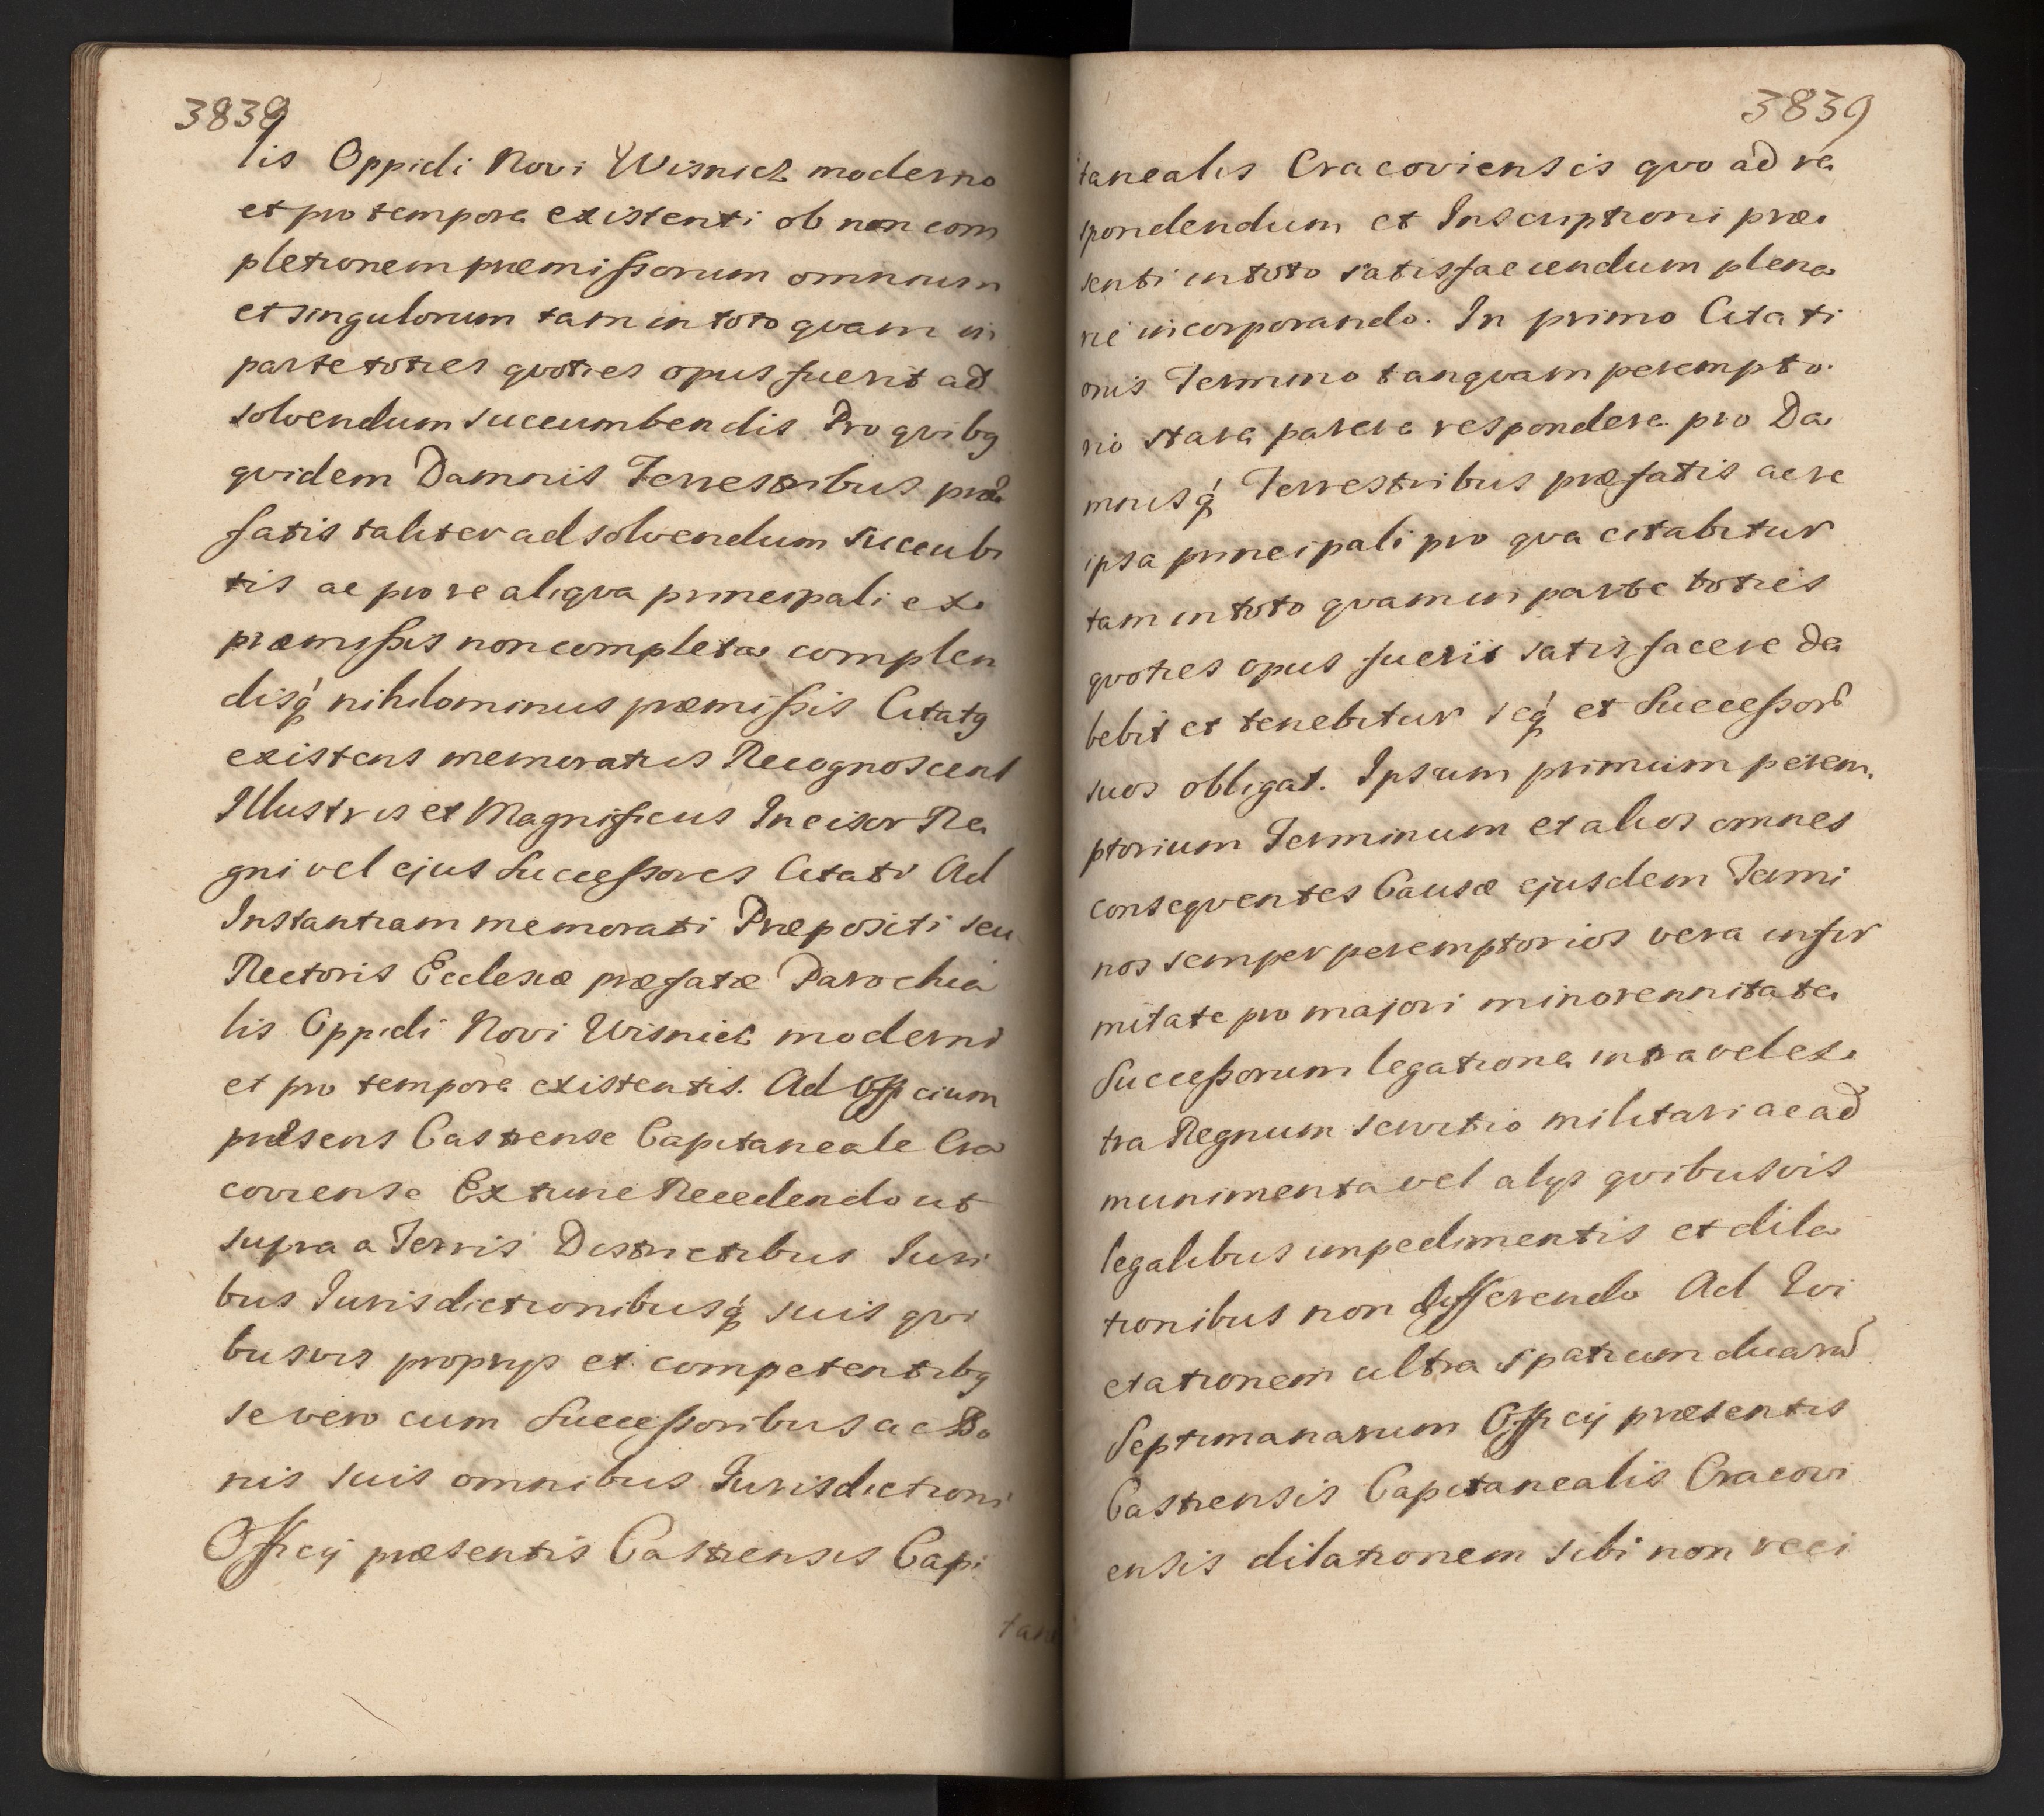 3838
lis Oppidi Novi Wisnicz moderno
et pro tempore existenti ob non com
pletionem præmissorum omnium
et singulorum tam in toto qvam in
parte toties qvoties opus fuerit ad
solvendum succumbendis Pro qvibq
qvidem Damnis Terrestribus præ
fatis taliter ad solvendum succubi
tis ac pro re aliqva principali ex
præmissis non completa complen
disq́ nihilominus præmissis Citatq
existens memoratus Recognoscens
Illustris et Magnificus Incisor Re
gni vel ejus Successores Citati Ad
Instantiam memorati Præpositi seu
Rectoris Ecclesiæ præfatæ Parochia
lis Oppidi Novi Wisnicz moderni
et pro tempore existentis. Ad Officium
præsens Castrense Capitaneale Cra
coviense Extunc Recedendo ut
supra a Terris Districtibus Juri
bus Jurisdictionibusq́ suis qvi
busvis proprijs et competentibq
se vero cum Successoribus ac Bo
nis suis omnibus Jurisdictioni
Officij præsentis Castrensis Capi
tane
3839
itanealis Cracoviensis qvo ad re
spondendum et Inscriptioni præ
senti in toto satisfaciendum plena
rie incorporando. In primo Citati
onis Termino tanqvam perempto
rio stare parere respondere pro Da
mnisq́ Terrestribus præfatis ac re
ipsa principali pro qva citabitur
tam in toto qvam in parte toties
qvoties opus fuerit satisfacere de
bebit et tenebitur seq́ et Successor̄
suos obligat. Ipsum primum perem
ptorium Terminum et alios omnes
conseqventes Causæ ejusdem Termi
nos semper peremptorios vera infir
mitate pro majori minorennitate
Successorum legatione intra vel ex
tra Regnum servitio militari ac ad
munimenta vel alys qvibusvis
legalibus impedimentis et dila
tionibus non differendo Ad Evi
ctationem ultra spatium duarū
Septimanarum Officij præsentis
Castrensis Capitanealis Cracovi
ensis dilationem sibi non reci